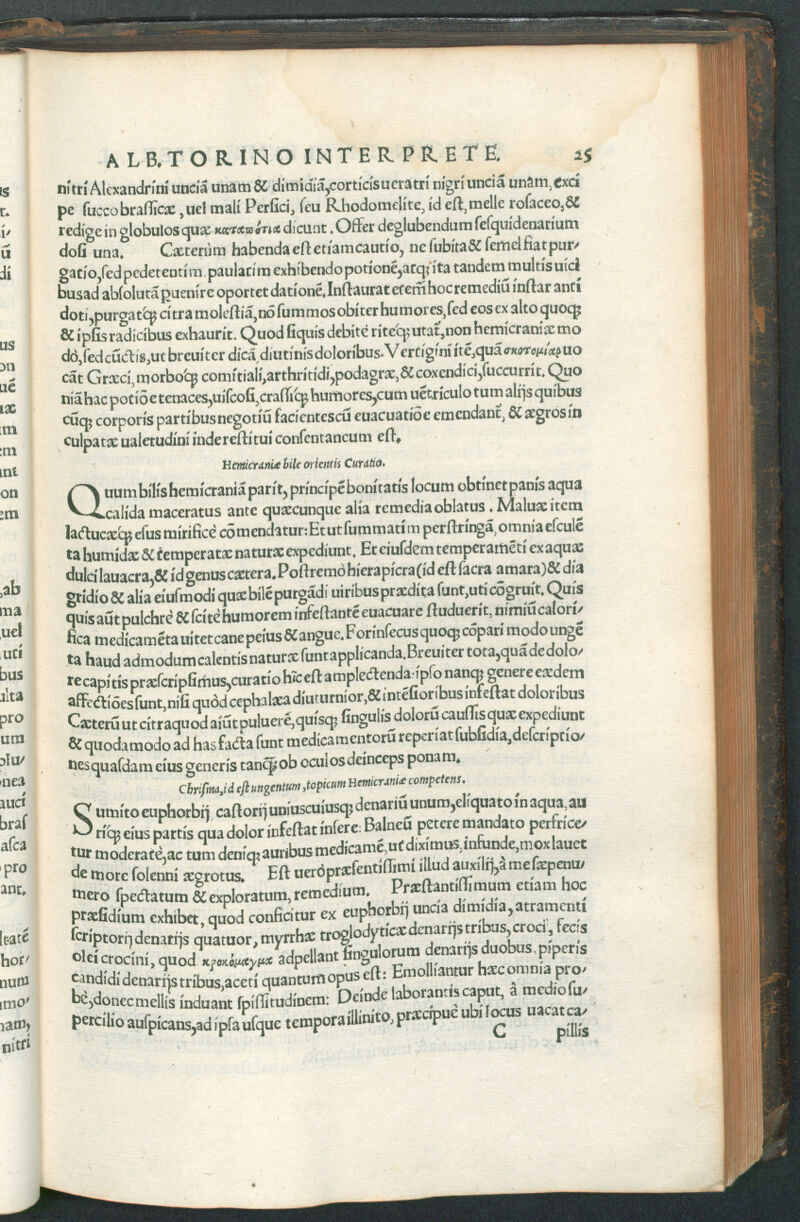 ALB. TORINO INTERPRETE. 25
nitri Alexandrini unciã unam & dimidiã, corticis ueratri nigri unciã unam, exci
pe succo brassicæ, uel mali Persici, seu Rhodomelite, id est, melle rosaceo, &
redige in globulos quæ καταπότια dicunt. Offer deglubendum sesquidenarium
dosi una. Cæterùm habenda est etiam cautio, ne subita & semel fiat pur/
gatio, sed pedetentim. paulatim exhibendo potionē, atq; ita tandem multis uici
bus ad absolutã puenire oportet dationē. Instaurat etem̃ hoc remediũ instar anti
doti, purgatq́; citra molestiã, nõ summos obiter humores, sed eos ex alto quoq;
& ipsis radicibus exhaurit. Quod siquis debitè riteq́; utat̃, non hemicraniæ mo
dò, sed cũctis, ut breuiter dicã, diutinis doloribus. Vertigini itē, quã σκοτομίαρ uo
cãt Græci, morboq́; comitiali, arthritidi, podagræ, & coxendici, succurrit. Quo
niã hac potiõe tenaces, uiscosi, crassiq́; humores, cum uẽtriculo tum alijs quibus
cũq; corporis partibus negotiũ facientes cũ euacuatiõe emendant̃, & ægros in
culpatæ ualetudini inde restitui consentaneum est.
Hemicraniæ bile orientis Curatio.
Quum bilis hemicraniã parit, principē bonitatis locum obtinet panis aqua
calida maceratus ante quæcunque alia remedia oblatus. Maluæ item
lactucæq́; esus mirificè cõmendatur: Et ut summatim perstringã, omnia esculē
ta humidæ & temperatæ naturæ expediunt. Et eiusdem temperamẽti ex aquæ
dulci lauacra, & id genus cætera. Postremò hierapicra (id est sacra amara) & dia
gridio & alia eiusmodi quæ bilē purgãdi uiribus prædita sunt, uti cõgruit. Quis
quis aũt pulchrè & scitè humorem infestantē euacuare studuerit, nimiũ calori/
fica medicamẽta uitet cane peius & angue. Forinsecus quoq; cõpari modo ungē
ta haud admodum calentis naturæ sunt applicanda. Breuiter tota, quã de dolo/
re capitis præscripsimus, curatio hîc est amplectenda. ipso nanq; genere eædem
affectiões sunt, nisi quòd cephalæa diuturnior, & intẽsioribus infestat doloribus
Cæterũ ut citra quod aiũt puluerē, quisq; singulis dolorũ caussis quæ expediunt
& quodamodo ad has facta sunt medicamentorũ reperiat subsidia, descriptio/
nes quasdam eius generis tanq̃; ob oculos deinceps ponam.
Chrisma, id est ungentum, topicum Hemicraniæ competens.
Sumito euphorbij, castorij uniuscuiusq; denariũ unum, eliquato in aqua, au
riq́; eius partis qua dolor infestat insere: Balneũ petere mandato perfrice/
tur moderatè, ac tum deniq; auribus medicamē, ut diximus, infunde, mox lauet
de more solenni ægrotus. Est uerò præsentissimi illud auxilij, à me sæpenu/
mero spectatum & exploratum, remedium. Præstantissimum etiam hoc
præsidium exhibet, quod conficitur ex euphorbij uncia dimidia, atramenti
scriptorij denarijs quatuor, myrrhæ troglodyticæ denarijs tribus, croci, fecis
olei crocini, quod κροκόμαγμα adpellant singulorum denarijs duobus, piperis
candidi denarijs tribus, aceti quantum opus est: Emolliantur hæc omnia pro/
bè, donec mellis induant spissitudinem: Deinde laborantis caput, à medio su/
percilio auspicans, ad ipsa usque tempora illinito, præcipuè ubi locus uacat ca/
C pillis